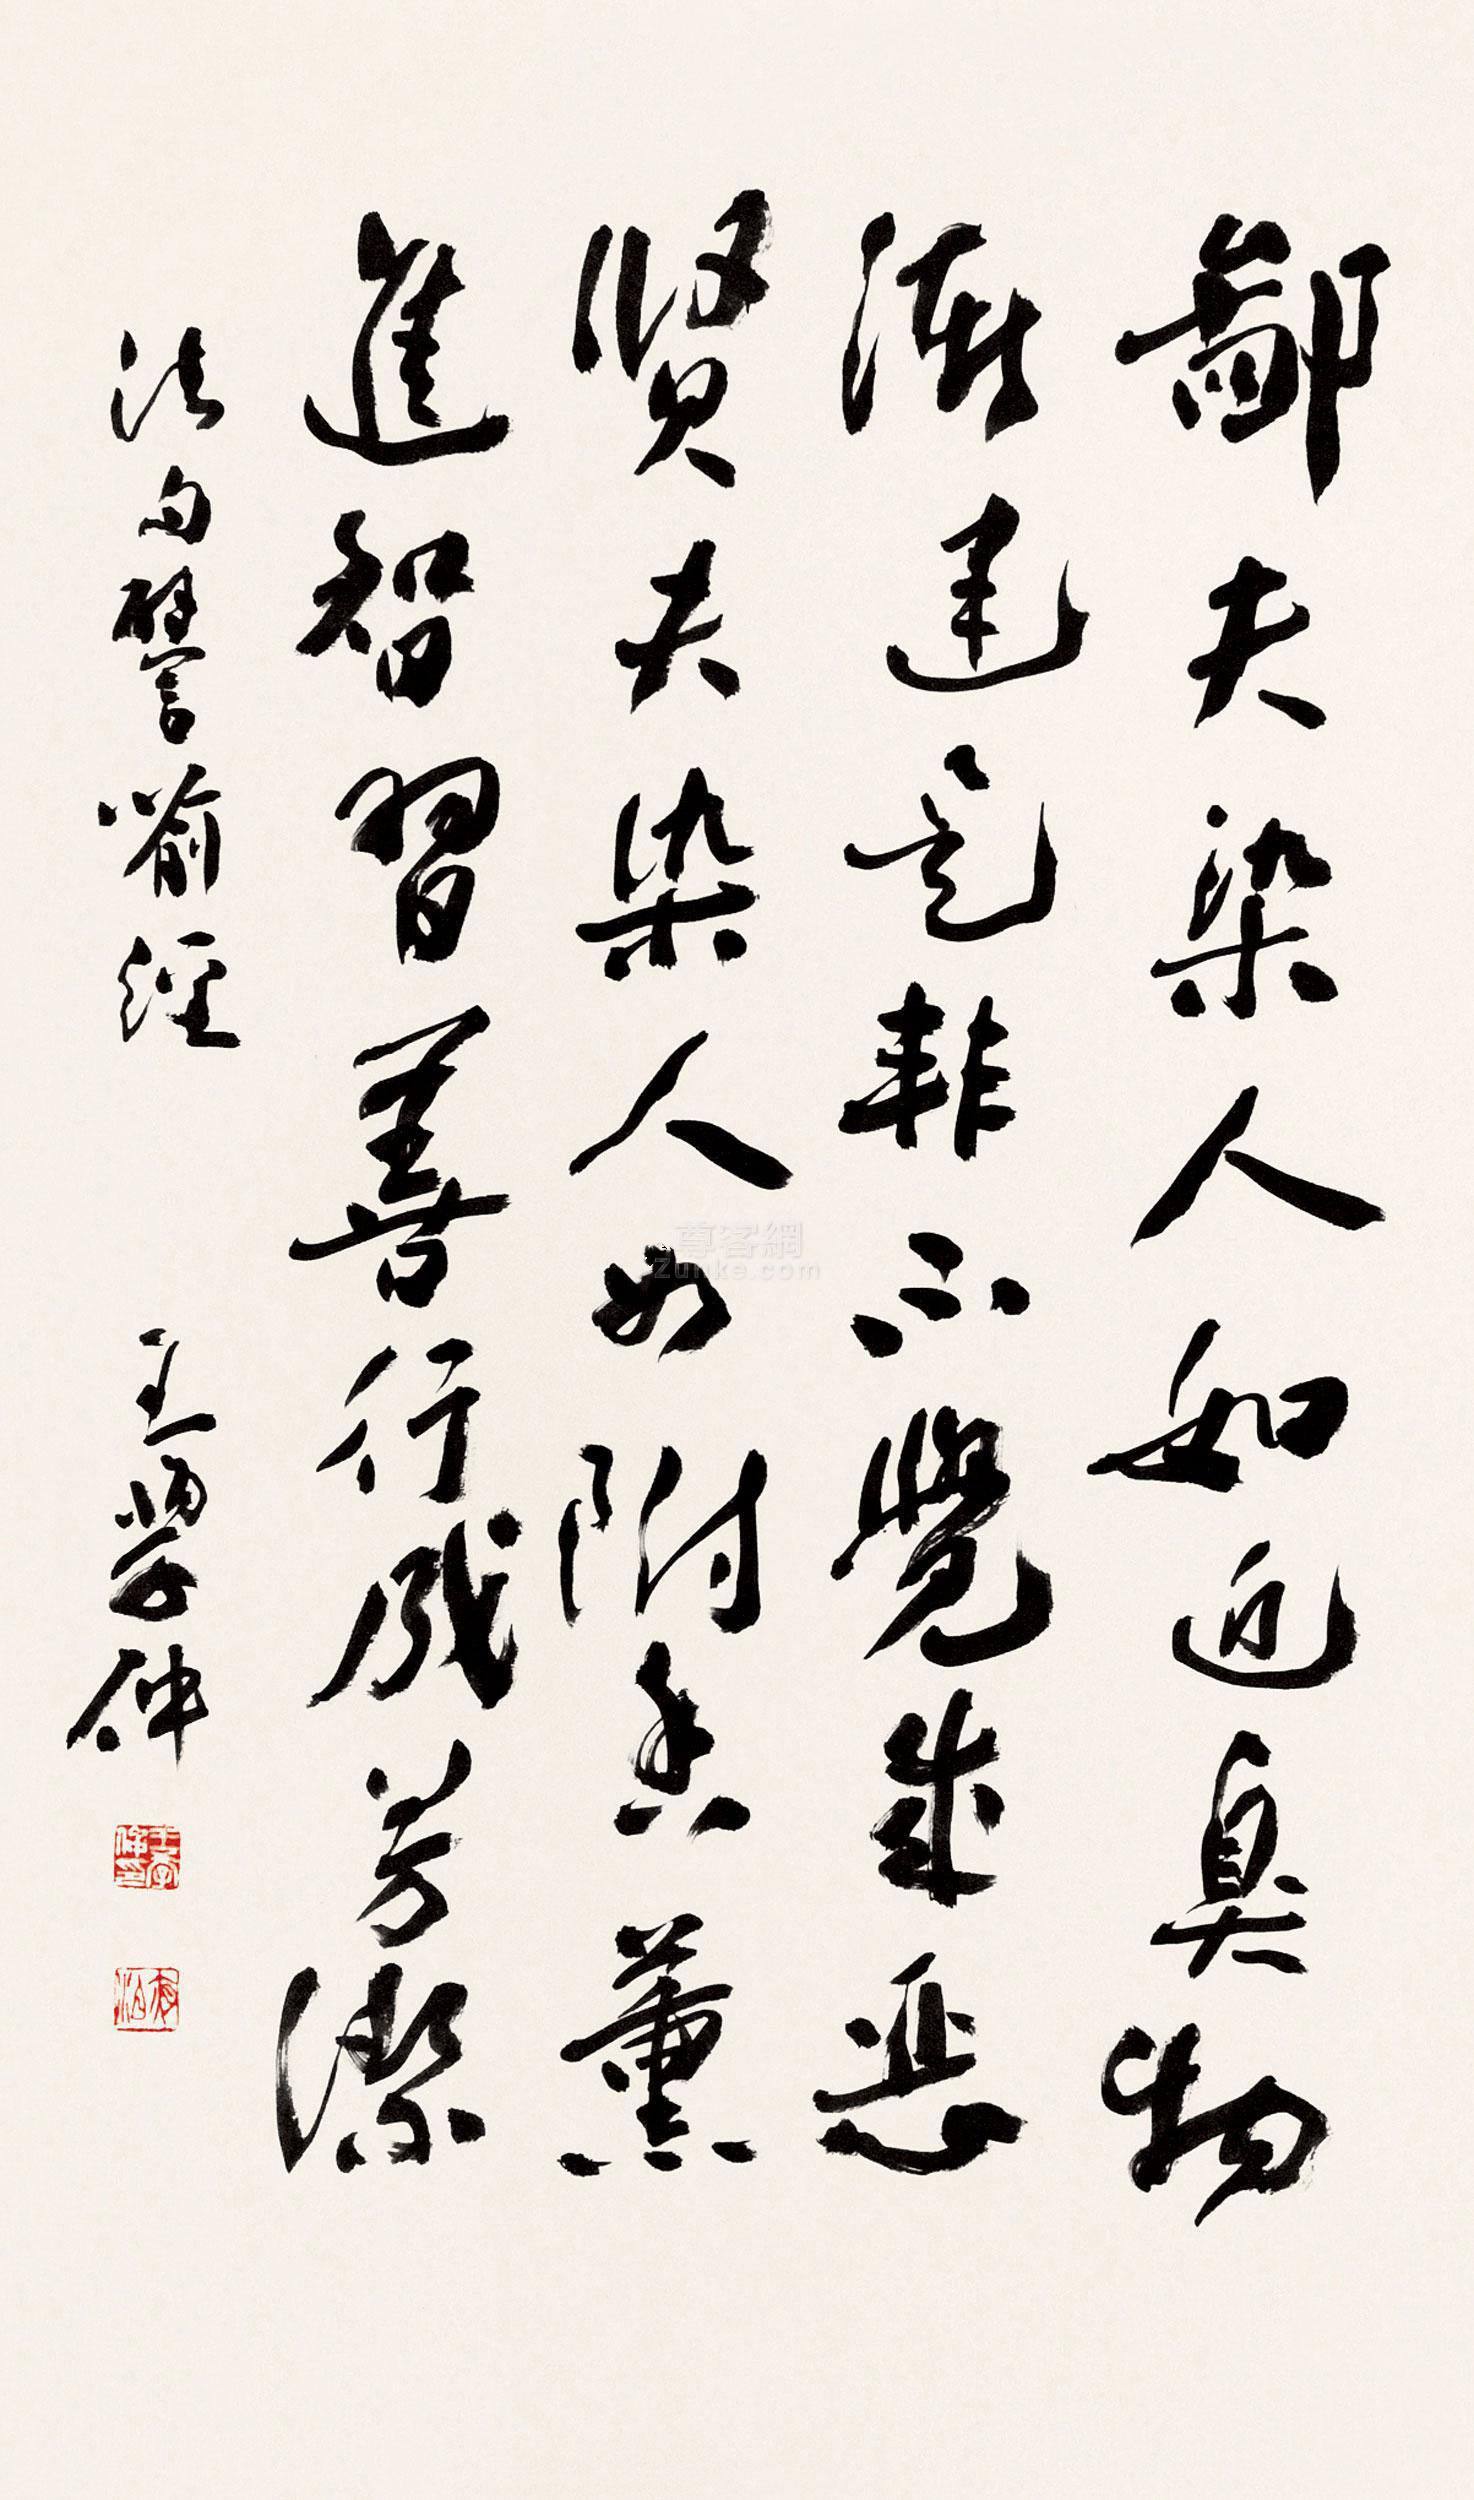 鄙夫染人如近臭物
漸迷是非不覺成惡
賢夫染人如附香薰
進智習善行成芳潔
法句譬喻經 王學仲
尊客網
Zunke.com